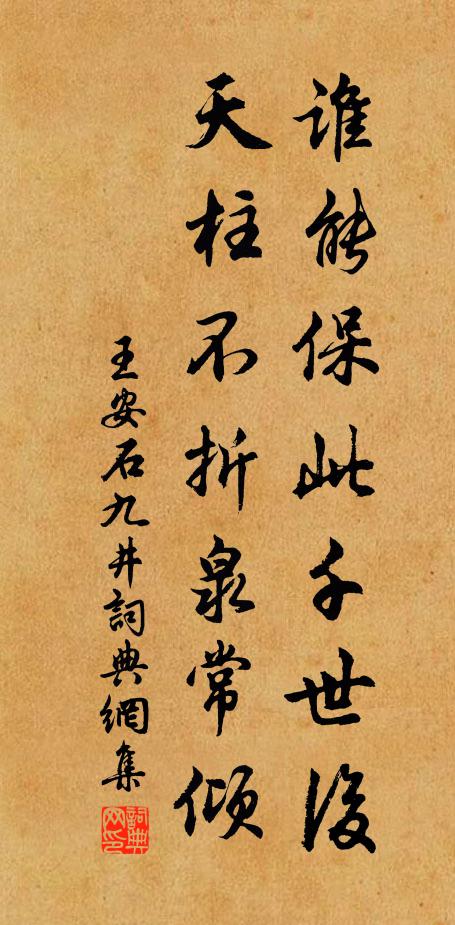 誰能保此千世後
天柱不折泉常傾
王安石九井詞典網集
詞典網印